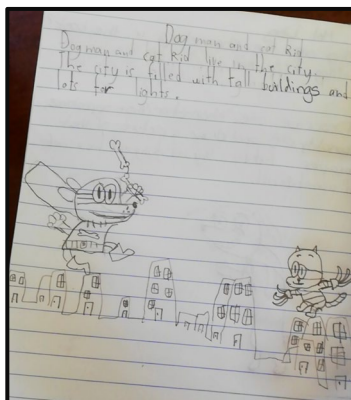 Dog man and cat Kid
Dog man and cat Kid live in the city.
The city is filled with tall buildings and
lots for lights.